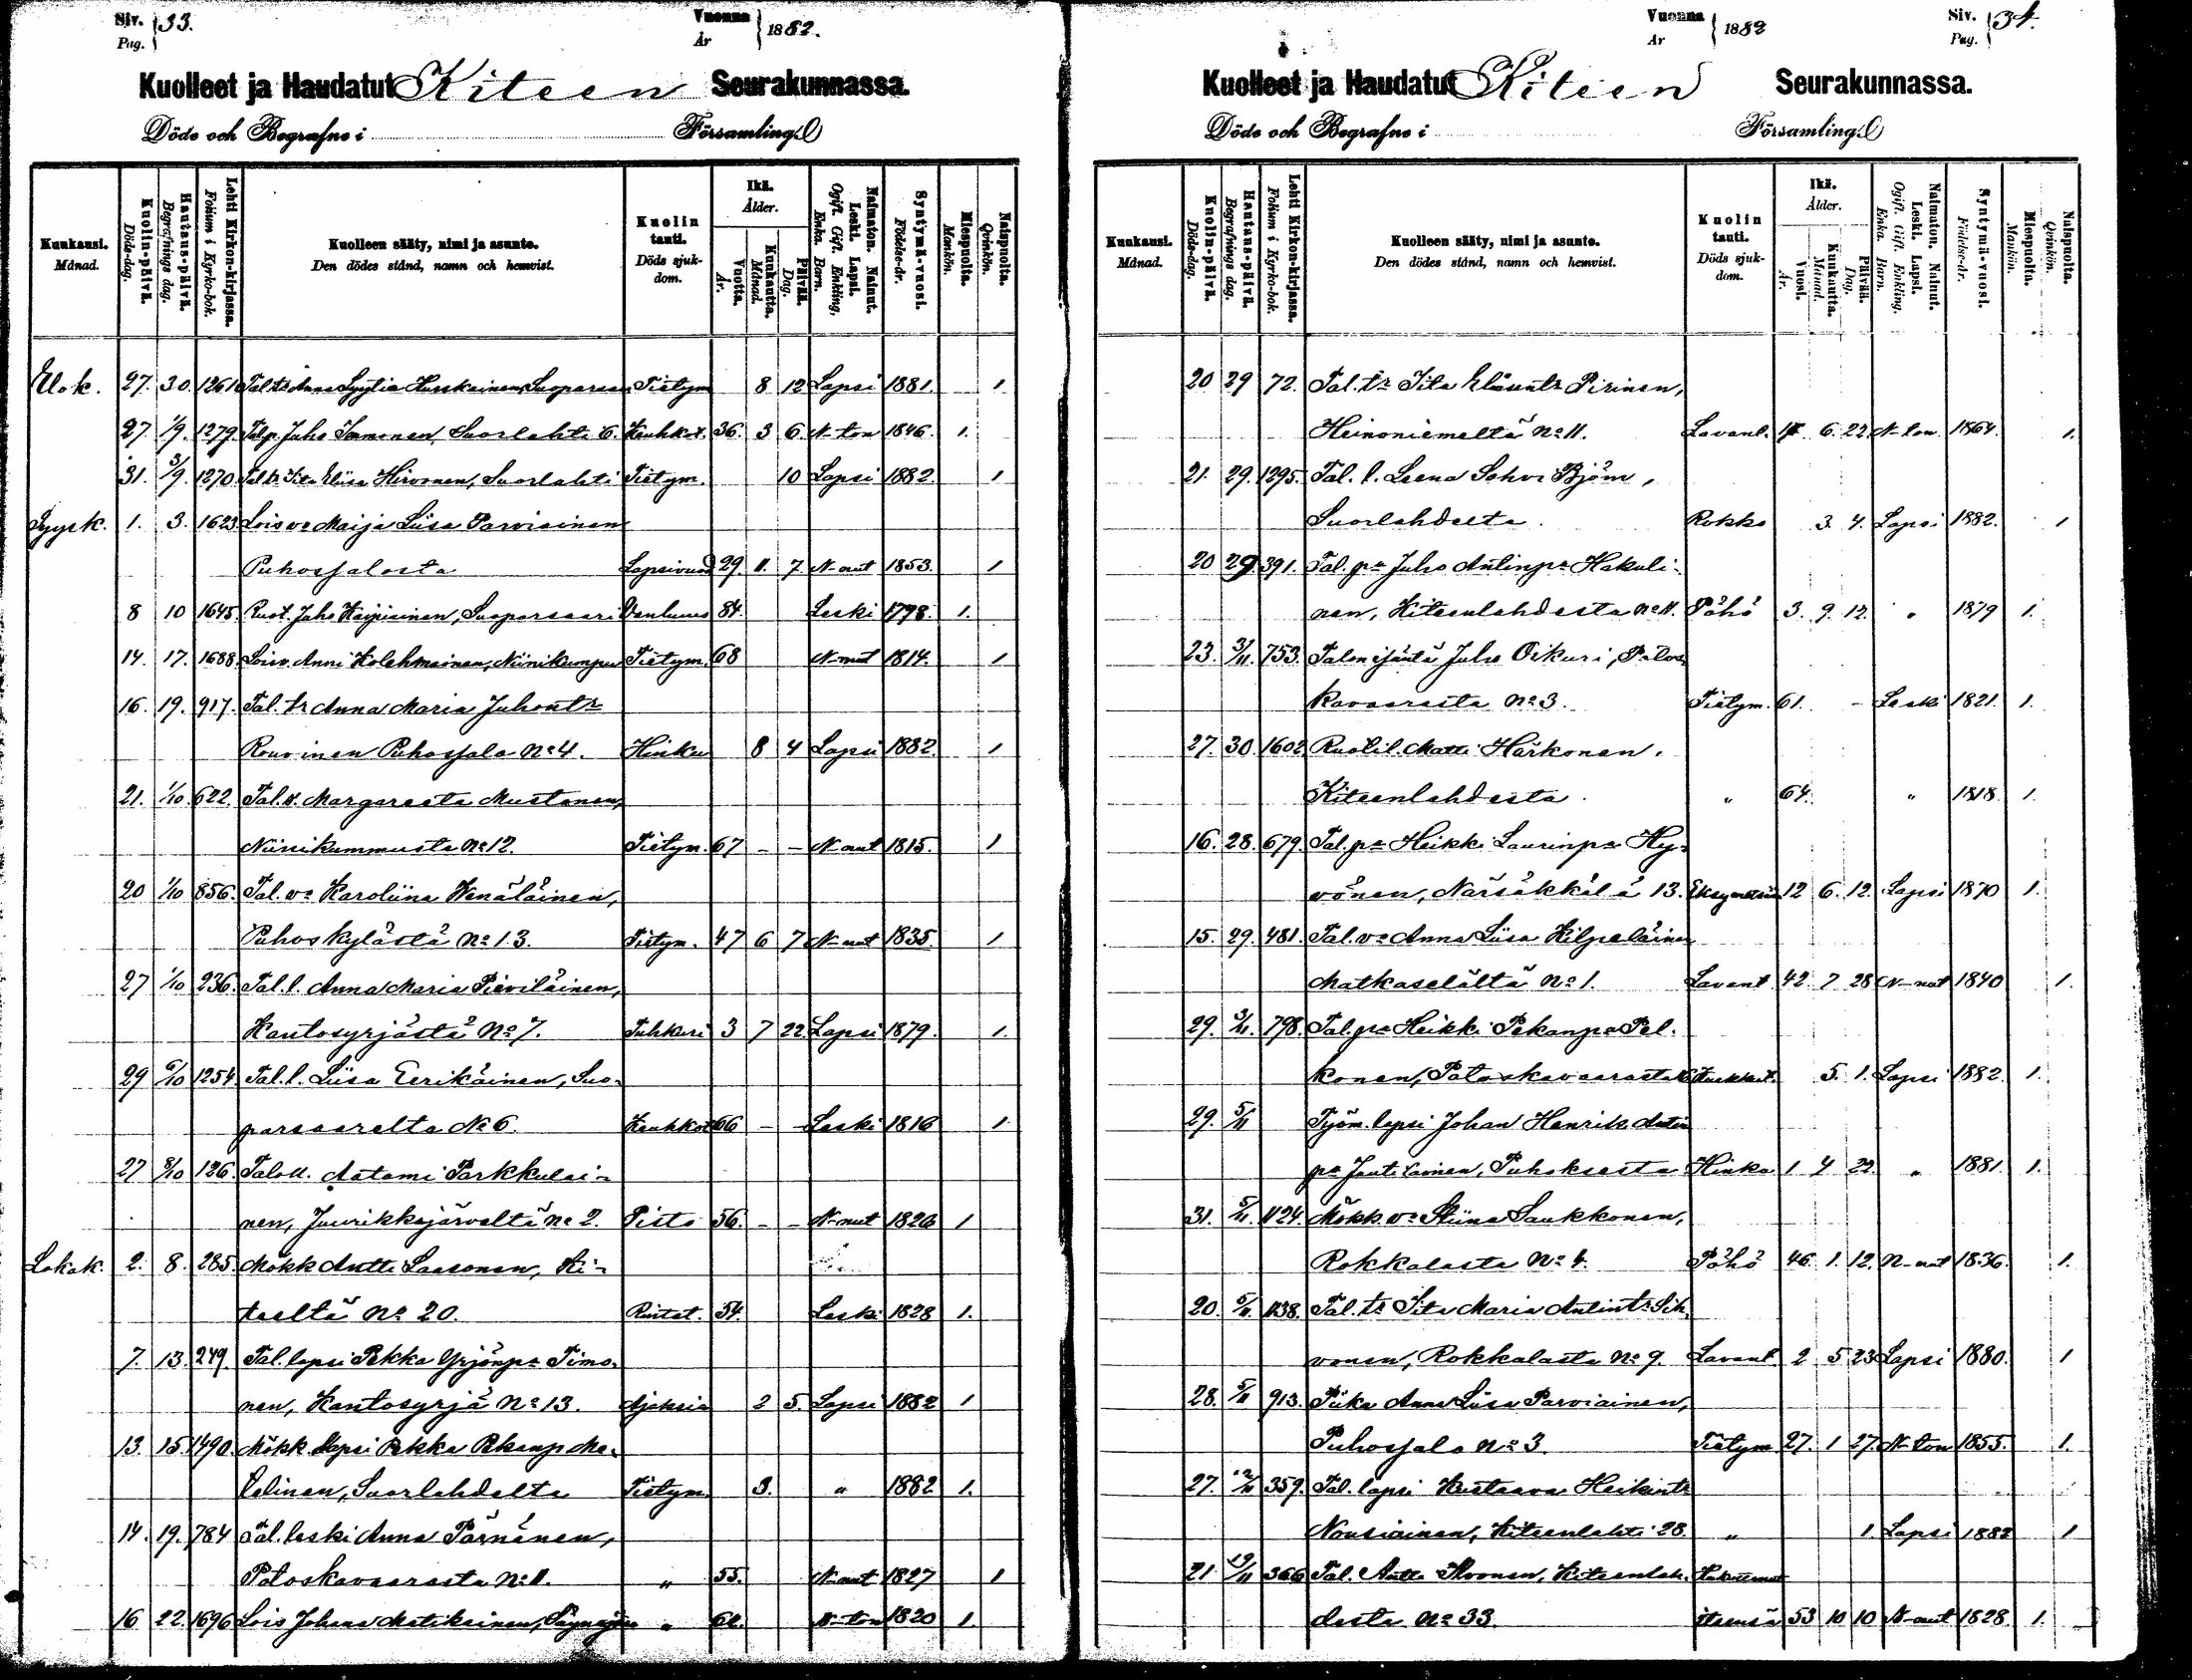 Siv. Pag. 33.
Vuonna År 1882.
Kuolleet ja Haudatut Kiteen Seurakunnassa.
Döde och Begrafne i Församling.
Kuukausi. Månad.
Kuolin-päivä. Döds-dag.
Hautaus-päivä. Begrafnings dag.
Lehti Kirkon-kirjassa. Folium i Kyrko-bok.
Kuolleen sääty, nimi ja asunto. Den dödes stånd, namn och hemvist.
Kuolin tauti. Döds sjuk-dom.
Ikä. Ålder.
Vuotta. År.
Kuukautta. Månad.
Päivää. Dag.
Naimaton. Nainut. Leski. Lapsi. Ogift. Gift. Enkling, Enka. Barn.
Syntymä-vuosi. Födelse-år.
Miespuolta. Mankön.
Naispuolta. Qvinkön.
Elok. 27. 30. 1261 Tal. tr Anna Lyytia Hurskainen, Suoparsaa Tietym 8 12 Lapsi 1881. 1
27. 1/9. 1279. Talp. Juho Immonen, Suorlahti 6. Keuhkot. 36. 3 6. N-ton 1846. 1.
31. 3/9. 1270. Tal. tr Iita Eliisa Hirvonen, Suorlahti Tietym. 10 Lapsi 1882. 1
Syysk. 1. 3. 1623 Lois. vo Maija Liisa Parviainen
Puhossalosta Lapsivuod 29 11. 7. N-nut 1853. 1
8 10 1645. Ruot. Juho Karpiainen, Suoparsaari Vanhuus 84. Leski 1798. 1.
14. 17. 1688. Lois v. Anni Kolehmainen, Niinikumpu Tietym. 68 N-nut 1814. 1
16. 19. 917. Tal. tr Anna Maria Juhontr
Rouvinen Puhossalo No 4. Hinku 8 4 Lapsi 1882. 1
21. 1/10 622. Tal. v. Margareeta Mustonen,
Niinikummusta No 12. Tietym. 67 - - N-nut 1815. 1
20 1/10 856. Tal. vo Karoliina Wenäläinen,
Puhoskylästä No 13. Tietym. 47 6 7 N-nut 1835. 1
27 1/10 236. Tal. l. Anna Maria Pieviläinen,
Kantosyrjästä No 7. Tuhkuri 3 7 22. Lapsi 1879. 1.
29 6/10 1254. Tal. l. Liisa Eerikäinen, Suo-
parsaarelta No 6. Keuhkot 66 - - Leski 1816 1
27 8/10 126. Talo Aatami Parkkulai-
nen, Juurikkajärveltä No 2. Pisto 56. - - N-nut 1826 1
Lokak. 2. 8. 285. Mökk Antti Laasonen, Ki-
teeltä No 20. Rintat. 54. Leski 1828 1.
7. 13. 249. Tal. lapsi Pekka Yrjönpa Timo-
nen, Kantosyrjä No 13. Ajoksia 2 5. Lapsi 1882 1
13. 15. 1490. Mökk. lapsi Pekka Pekanp
linen, Suorlahdelta Tietym. 3. " 1882 1.
14. 19. 784 Tal. leski Anna Pärnänen,
Potoskavaarasta No 11. " 55. N-nut 1827 1
16 22. 1696 Lois Johana Matikainen, " 62. N-ton 1820 1.
Vuonna År 1882
Siv. Pag. 34.
Kuolleet ja Haudatut Kiteen Seurakunnassa.
Döde och Begrafne i Församling.
Kuukausi. Månad.
Kuolin-päivä. Döds-dag.
Hautaus-päivä. Begrafnings dag.
Lehti Kirkon-kirjassa. Folium i Kyrko-bok.
Kuolleen sääty, nimi ja asunto. Den dödes stånd, namn och hemvist.
Kuolin tauti. Döds sjuk-dom.
Ikä. Ålder.
Vuosi. År.
Kuukautta. Månad.
Päivää. Dag.
Naimaton. Nainut. Leski. Lapsi. Ogift. Gift. Enkling. Enka. Barn.
Syntymä-vuosi. Födelse-år.
Miespuolta. Mankön.
Naispuolta. Qvinkön.
20 29 72. Tal. tr Iita Pirinen,
Heinoniemeltä No 11. Lavant. 6. 22. N-ton 1864. 1.
21. 29. 1295. Tal. l. Leena Sohvi Björn,
Suorlahdelta. Rokko 3. 4. Lapsi 1882. 1
20 29. 391. Tal. pa Juho Antinpa Hakuli-
nen, Kiteenlahdesta No 11. Pöhö 3. 9. 12. " 1879 1.
23. 3/11. 753. Talon isäntä Juho Oikuri, Potos-
kavaarasta No 3. Tietym. 61. - Leski 1821. 1.
27. 30. 1602. Ruotil. Matti Härkönen.
Kiteenlahdesta. " 64. " 1818 1.
16. 28. 679. Tal. pa Heikki Laurinpa Hy-
vönen, Närsäkkälä 13. Eksymisiin 12 6. 12. Lapsi 1870 1.
15. 29. 481. Tal. vo Anna Liisa Kilpeläinen
Matkaselältä No 1. Lavant. 42. 7 28 N-nut 1840 1.
29. 3/11. 798. Tal. pa Heikki Pekanpa Pel-
konen, Potoskavaarasta Keuhkot. 5. 1. Lapsi 1882. 1.
29. 5/11 Työm. lapsi Johan Henrik Antin
pa Puhoksesta Hinku 1 4 22. " 1881. 1.
31. 5/11. 1124. Mökk. vo Stiina Saukkonen,
Rokkalasta No 4. Pöhö 46. 1. 12. N-nut 1836. 1.
20. 5/11. 1138. Tal. tr Iita Maria Antintr Sih-
vonen, Rokkalasta No 9. Lavant. 2 5 23 Lapsi 1880. 1
28. 5/11 913. Piika Anna Liisa Parviainen,
Puhossalo No 3. Tietym. 27. 1 27. N-ton 1855. 1.
27. 12/11 359. Tal. lapsi Kustaava Heikintr
Nousiainen, Kiteenlahti 28. " 1. Lapsi 1882 1
21. 19/11 366 Tal. Antti Ikonen, Kiteenlah- Hukuttanut
desta No 33. itsensä 53 10 10 N-nut 1828. 1.